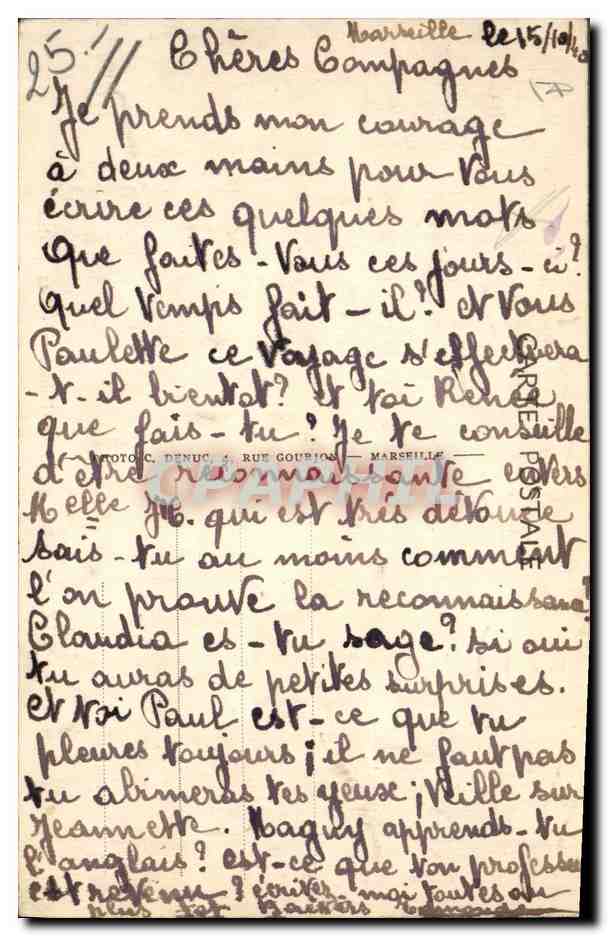 Marseille le 15/10/40
25.
Chères Compagnes
Je prends mon courage
à deux mains pour vous
écrire ces quelques mots
Que faites-vous ces jours-ci?
Quel temps fait-il? et vous
Paulette ce voyage s'effectuera
-t-il bientot? et toi Renée
que fais-tu? Je te conseille
PHOTO C. DENUC, 4, RUE GOURJON — MARSEILLE
d'être reconnaissante envers
CPAPHIL
CARTE POSTALE
Melle M. qui est très dévouée
sais-tu au moins comment
l'on prouve la reconnaissance?
Claudia es-tu sage? si oui
tu auras de petites surprises.
et toi Paul est-ce que tu
pleures toujours; il ne faut pas
tu abimeras tes yeux; Veille sur
Jeannette. Maguy apprends-tu
l'anglais? est-ce que ton professeur
est revenu? écrivez-moi toutes au
plus tot Baisers